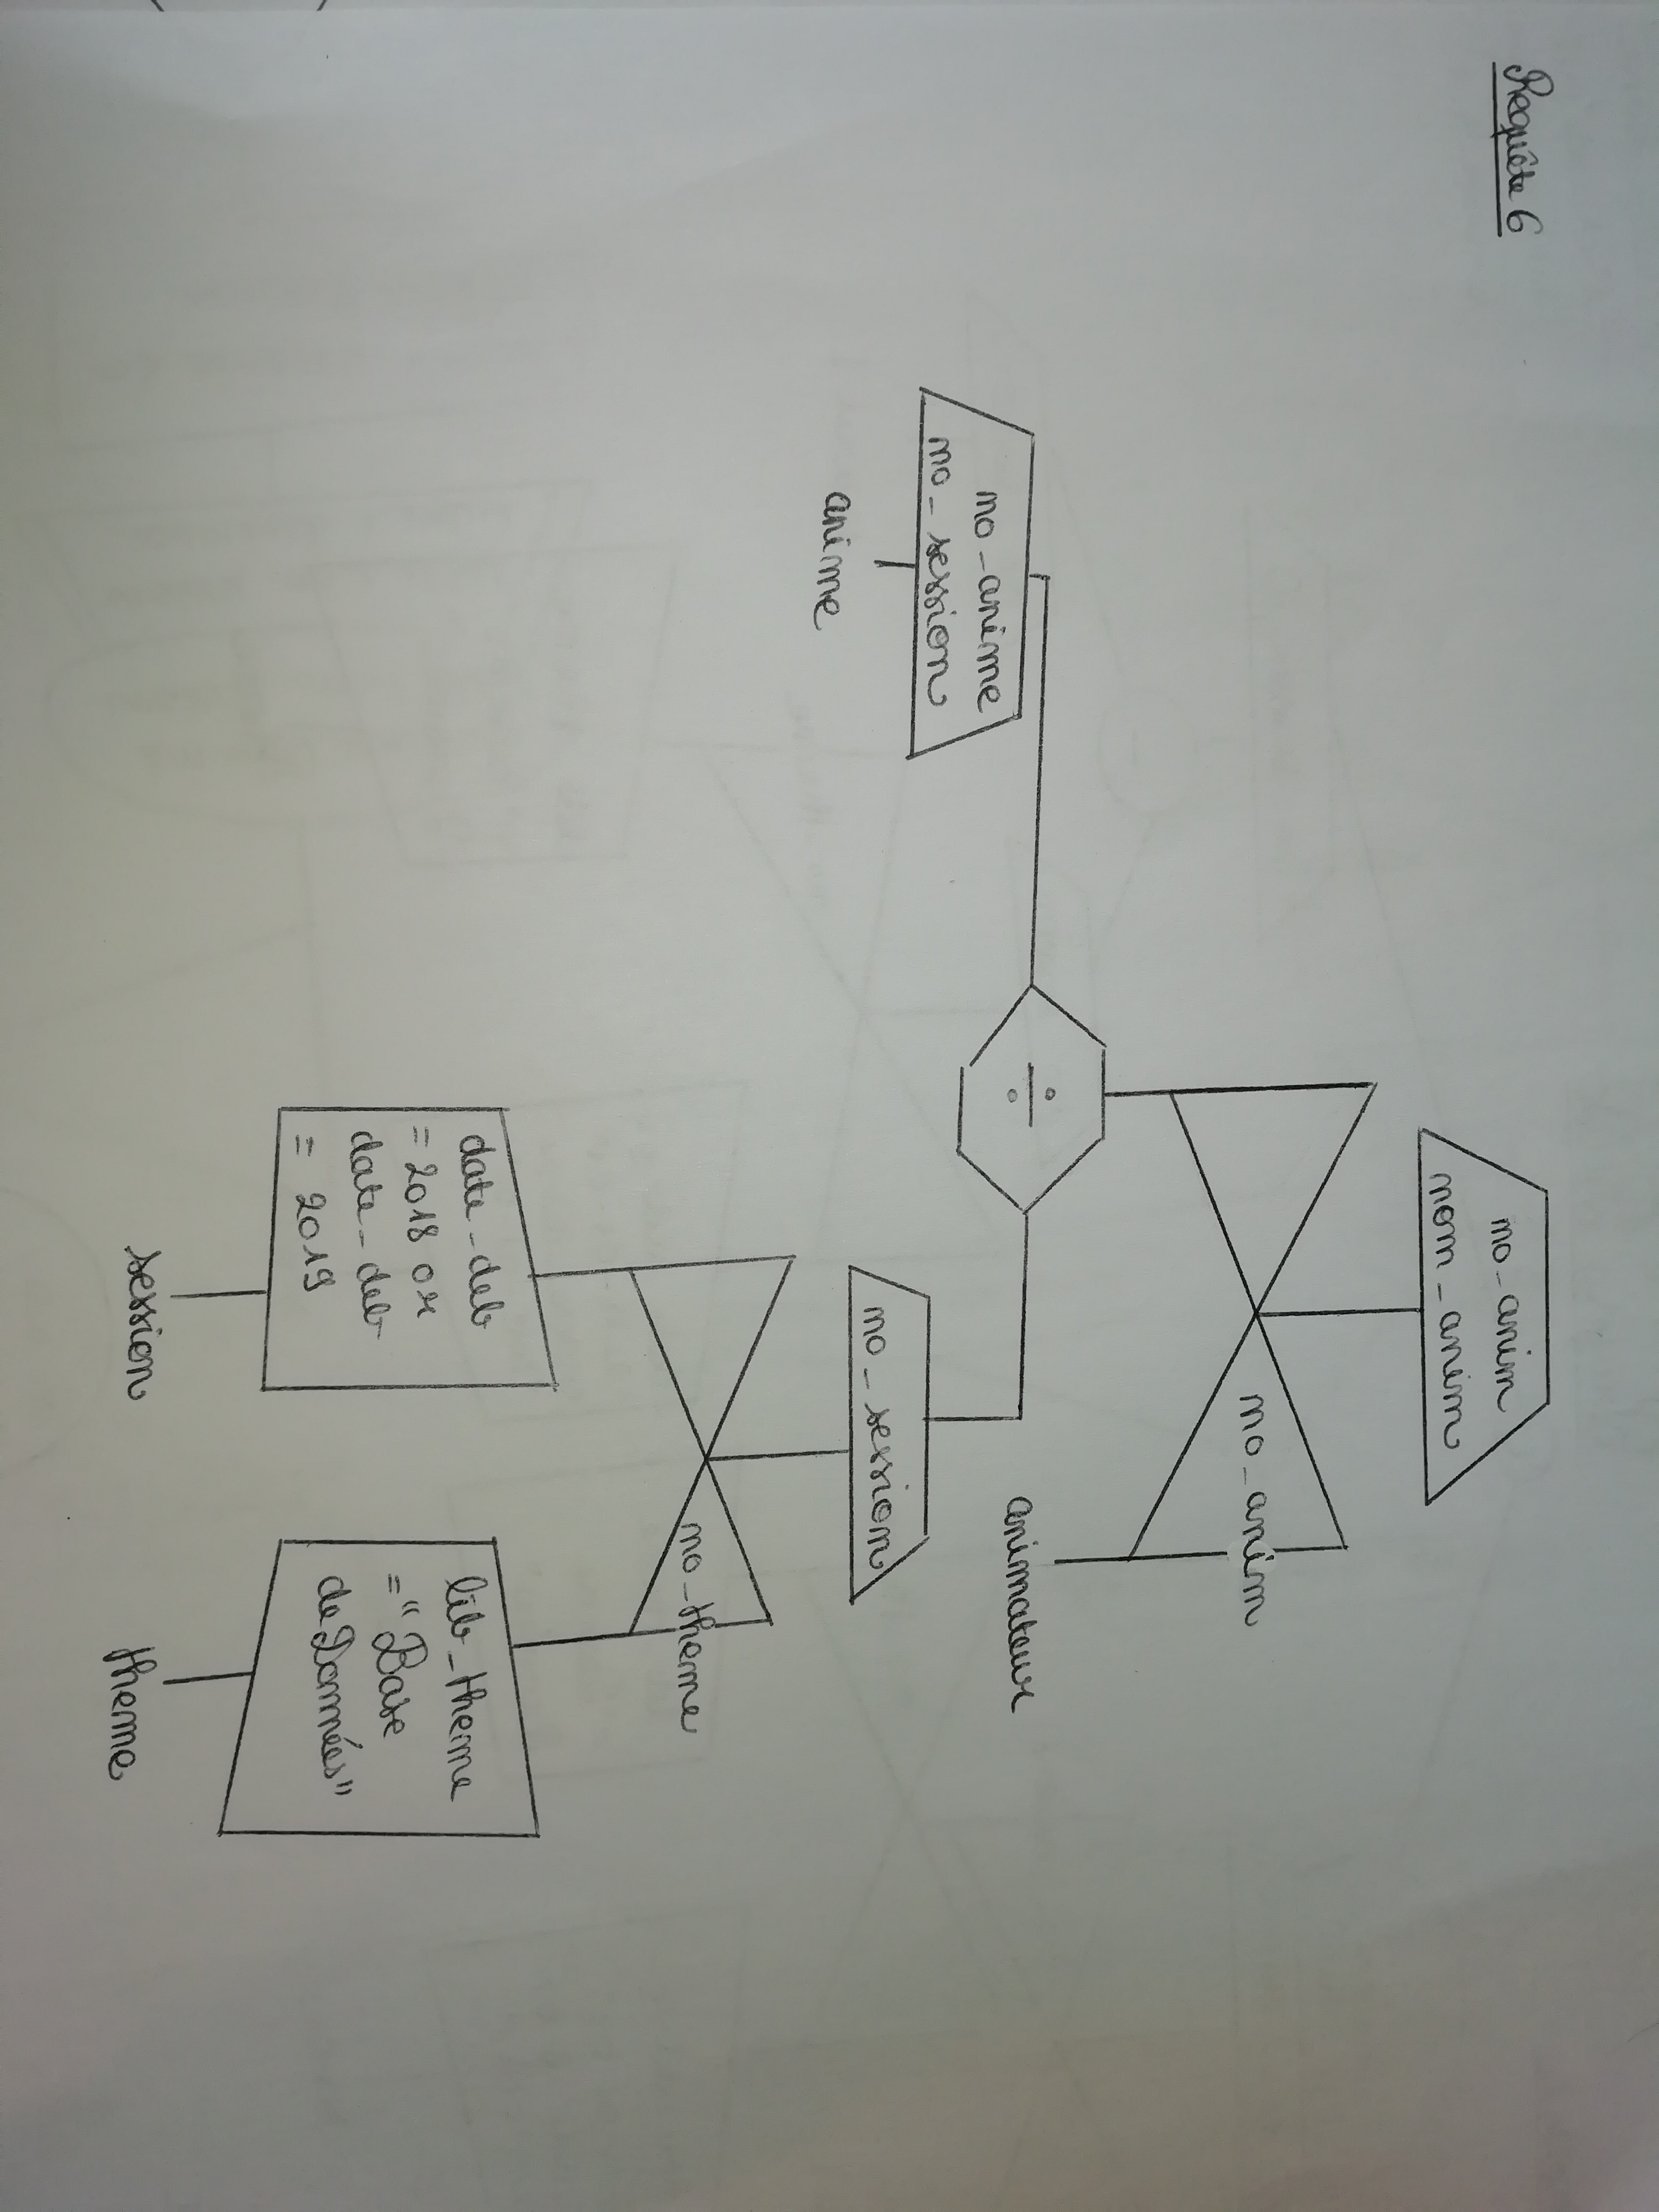 Requête 6
no_anim
nom_anim
no_anim
animateur
÷
no_anime
no_session
anime
no_session
no_theme
date_deb
= 2018 or
date_deb
= 2019
lib_theme
= "Base
de Données"
session
theme